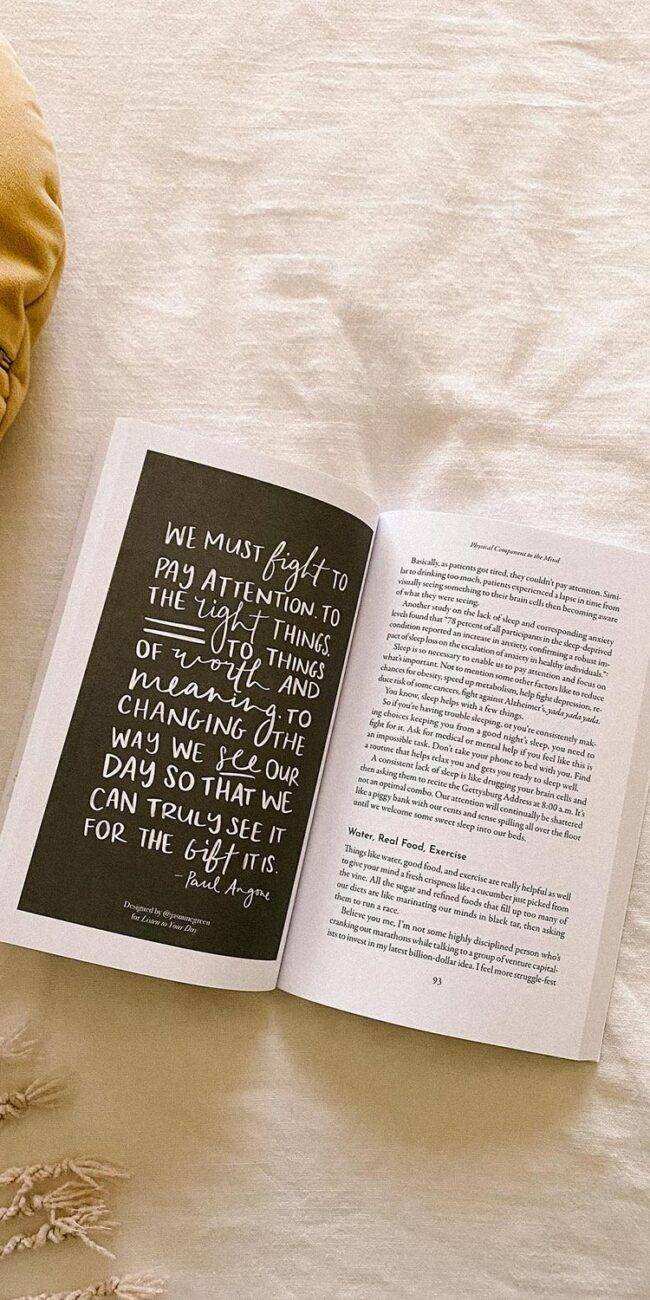 WE MUST fight TO
PAY ATTENTION. TO
THE right THINGS.
TO THINGS
OF worth AND
meaning. TO
CHANGING THE
WAY WE see OUR
DAY SO THAT WE
CAN TRULY SEE IT
FOR THE Gift IT IS.
- Paul Angone
Designed by @jasminegreen
for Listen to Your Day
Physical Component to the Mind
Basically, as patients got tired, they couldn't pay attention. Simi-
lar to drinking too much, patients experienced a lapse in time from
visually seeing something to their brain cells then becoming aware
of what they were seeing.
Another study on the lack of sleep and corresponding anxiety
levels found that "78 percent of all participants in the sleep-deprived
condition reported an increase in anxiety, confirming a robust im-
pact of sleep loss on the escalation of anxiety in healthy individuals."
Sleep is so necessary to enable us to pay attention and focus on
what's important. Not to mention some other factors like to reduce
chances for obesity, speed up metabolism, help fight depression, re-
duce risk of some cancers, fight against Alzheimer's, yada yada yada.
You know, sleep helps with a few things.
So if you're having trouble sleeping, or you're consistently mak-
ing choices keeping you from a good night's sleep, you need to
fight for it. Ask for medical or mental help if you feel like this is
an impossible task. Don't take your phone to bed with you. Find
a routine that helps relax you and gets you ready to sleep well.
A consistent lack of sleep is like drugging your brain cells and
then asking them to recite the Gettysburg Address at 8:00 a.m. It's
not an optimal combo. Our attention will continually be shattered
like a piggy bank with our cents and sense spilling all over the floor
until we welcome some sweet sleep into our beds.
Water, Real Food, Exercise
Things like water, good food, and exercise are really helpful as well
to give your mind a fresh crispness like a cucumber just picked from
the vine. All the sugar and refined foods that fill up too many of
our diets are like marinating our minds in black tar, then asking
them to run a race.
Believe you me, I'm not some highly disciplined person who's
cranking out marathons while talking to a group of venture capital-
ists to invest in my latest billion-dollar idea. I feel more struggle-fest
93